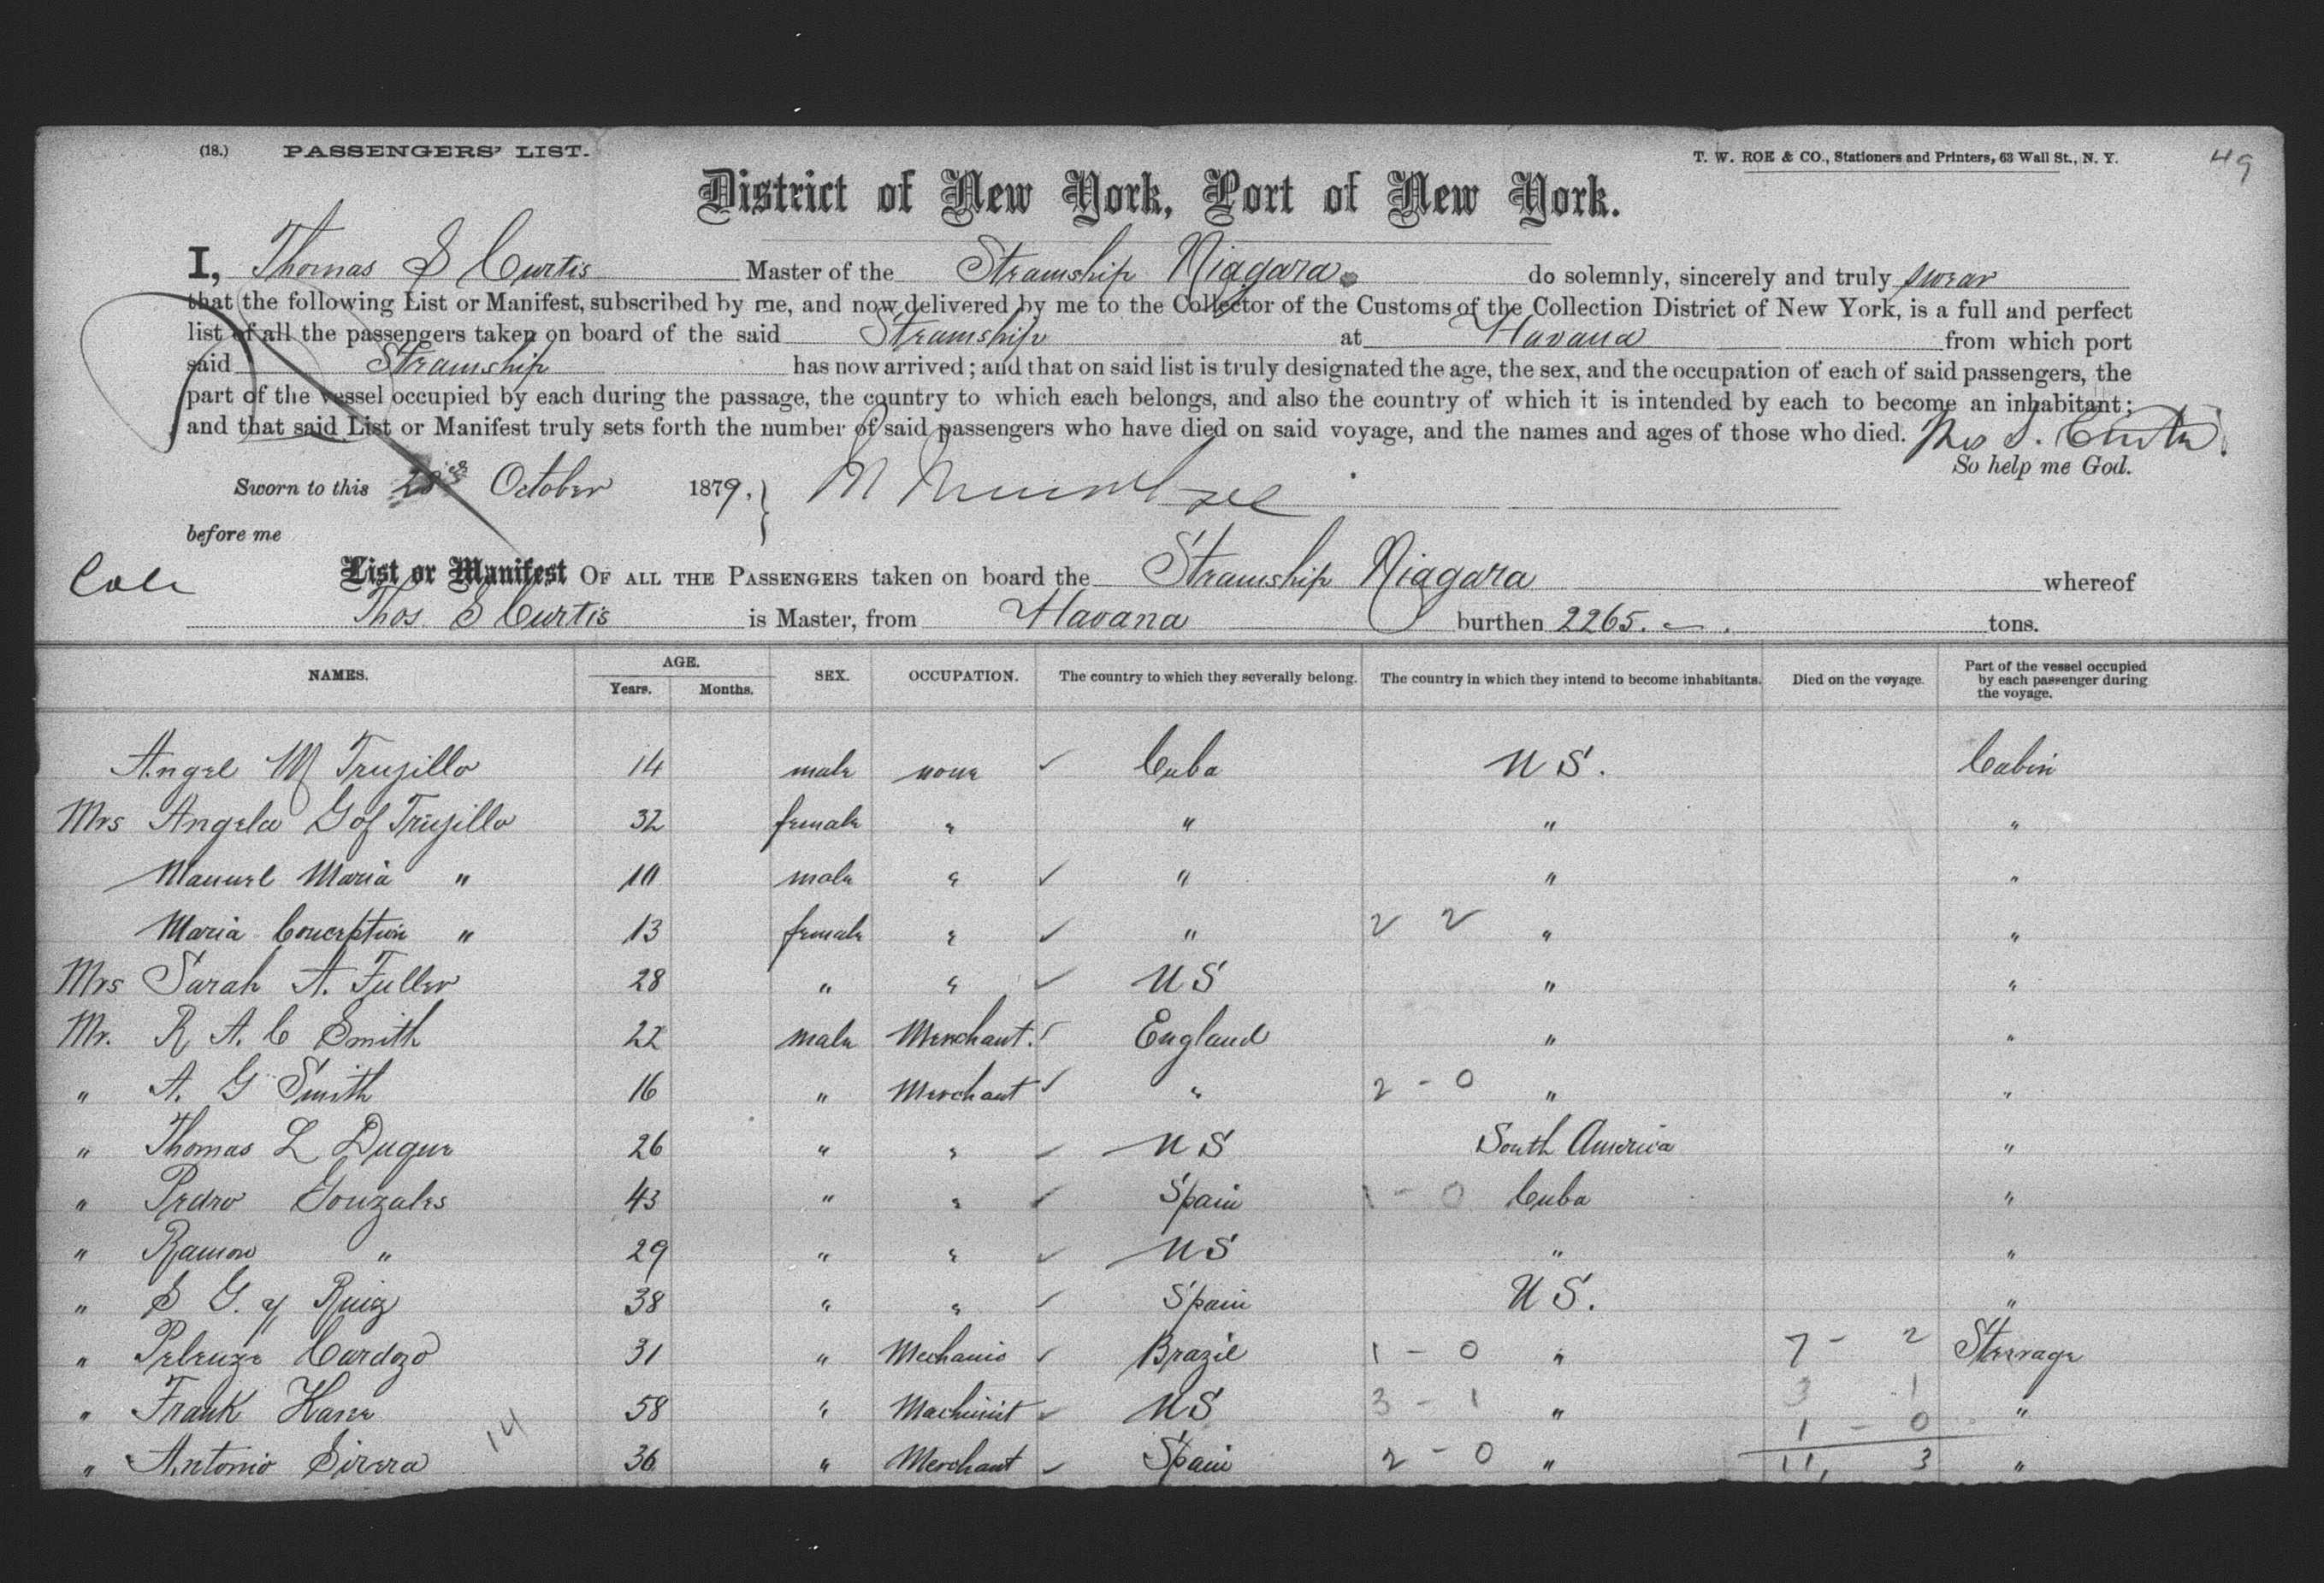 (18.) PASSENGERS' LIST.
T. W. ROE & CO., Stationers and Printers, 63 Wall St., N. Y.
49
District of New York, Port of New York.
I, Thomas S Curtis Master of the Steamship Niagara do solemnly, sincerely and truly swear
that the following List or Manifest, subscribed by me, and now delivered by me to the Collector of the Customs of the Collection District of New York, is a full and perfect
list of all the passengers taken on board of the said Steamship at Havana from which port
said Steamship has now arrived; and that on said list is truly designated the age, the sex, and the occupation of each of said passengers, the
part of the vessel occupied by each during the passage, the country to which each belongs, and also the country of which it is intended by each to become an inhabitant;
and that said List or Manifest truly sets forth the number of said passengers who have died on said voyage, and the names and ages of those who died. Thos S. Curtis
So help me God.
Sworn to this October 1879,
before me
List or Manifest OF ALL THE PASSENGERS taken on board the Steamship Niagara whereof
Thos. S Curtis is Master, from Havana burthen 2265. tons.
NAMES. AGE. Years. Months. SEX. OCCUPATION. The country to which they severally belong. The country in which they intend to become inhabitants. Died on the voyage. Part of the vessel occupied by each passenger during the voyage.
Angel M Trujillo 14 male none ✓ Cuba U S. Cabin
Mrs Angela G of Trujillo 32 female " " " "
Manuel Maria " 10 male " ✓ " " "
Maria Conception " 13 female " ✓ " 2 2 " "
Mrs Sarah A. Fuller 28 " " ✓ U S " "
Mr. R A. C Smith 22 male Merchant. ✓ England " "
" A. G Smith 16 " Merchant ✓ " 2 - 0 " "
" Thomas L Duque 26 " " ✓ U S South America "
" Pedro Gonzales 43 " " ✓ Spain 1 - 0 Cuba "
" Ramon " 29 " " ✓ U S " "
" S G. y Ruiz 38 " " ✓ Spain U S. "
" Cardozo 31 " Mechanic ✓ Brazil 1 - 0 " 7 - 2 Steerage
" Frank Kane 58 " Machinist ✓ U S 3 - 1 " 3 1 "
1 - 0
" Antonio Sierra 14 36 " Merchant ✓ Spain 2 - 0 " 11, 3 "